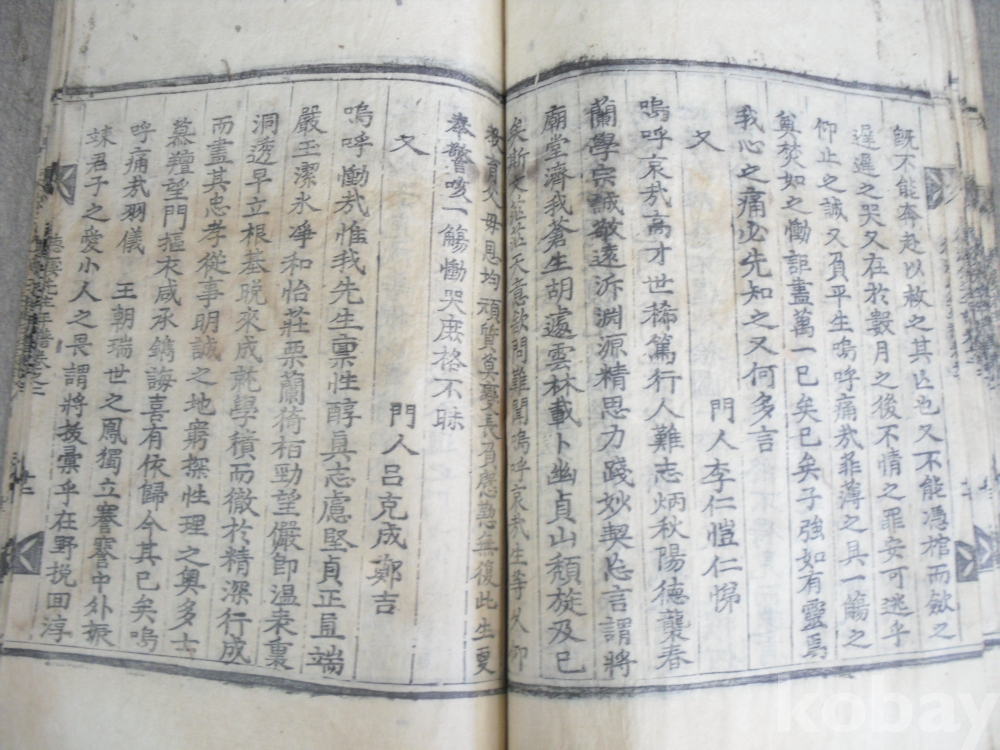 旣不能奔赴以救之其亡也又不能憑棺而斂之
遲遲之哭又在於數月之後不情之罪安可逃乎
仰止之誠又負平生嗚呼痛哉菲薄之具一觴之
奠焚如之慟詎盡萬一已矣已矣子強如有靈爲
我心之痛必先知之又何多言
又
門人李仁愷仁悌
嗚呼哀哉高才世稀篤行人難志炳秋陽德襲春
蘭學宗誠敬遠泝淵源精思力踐妙契忘言謂將
廟堂濟我蒼生胡遽雲林載卜幽貞山頹旋及已
矣斯文茫茫天意欲問難聞嗚呼哀哉生等久仰
育父母恩均頑質莫變長負應愆無復此生更
奉警咳一觴慟哭庶格不昧
又
門人呂克成鄭吉
嗚呼慟哉惟我先生稟性醇眞志慮堅貞正直端
嚴玉潔氷崢和怡莊栗蘭猗栢勁望儼卽溫表裏
洞透早立根基晩來成就學積而徹於精深行成
而盡其忠孝從事明誠之地窮探性理之奧多士
慕羶望門摳衣咸承鐫誨喜有依歸今其已矣嗚
呼痛哉羽儀 王朝瑞世之鳳獨立謇謇中外振
竦君子之愛小人之畏謂將拔彙乎在野挽回淳
先生年譜卷之二